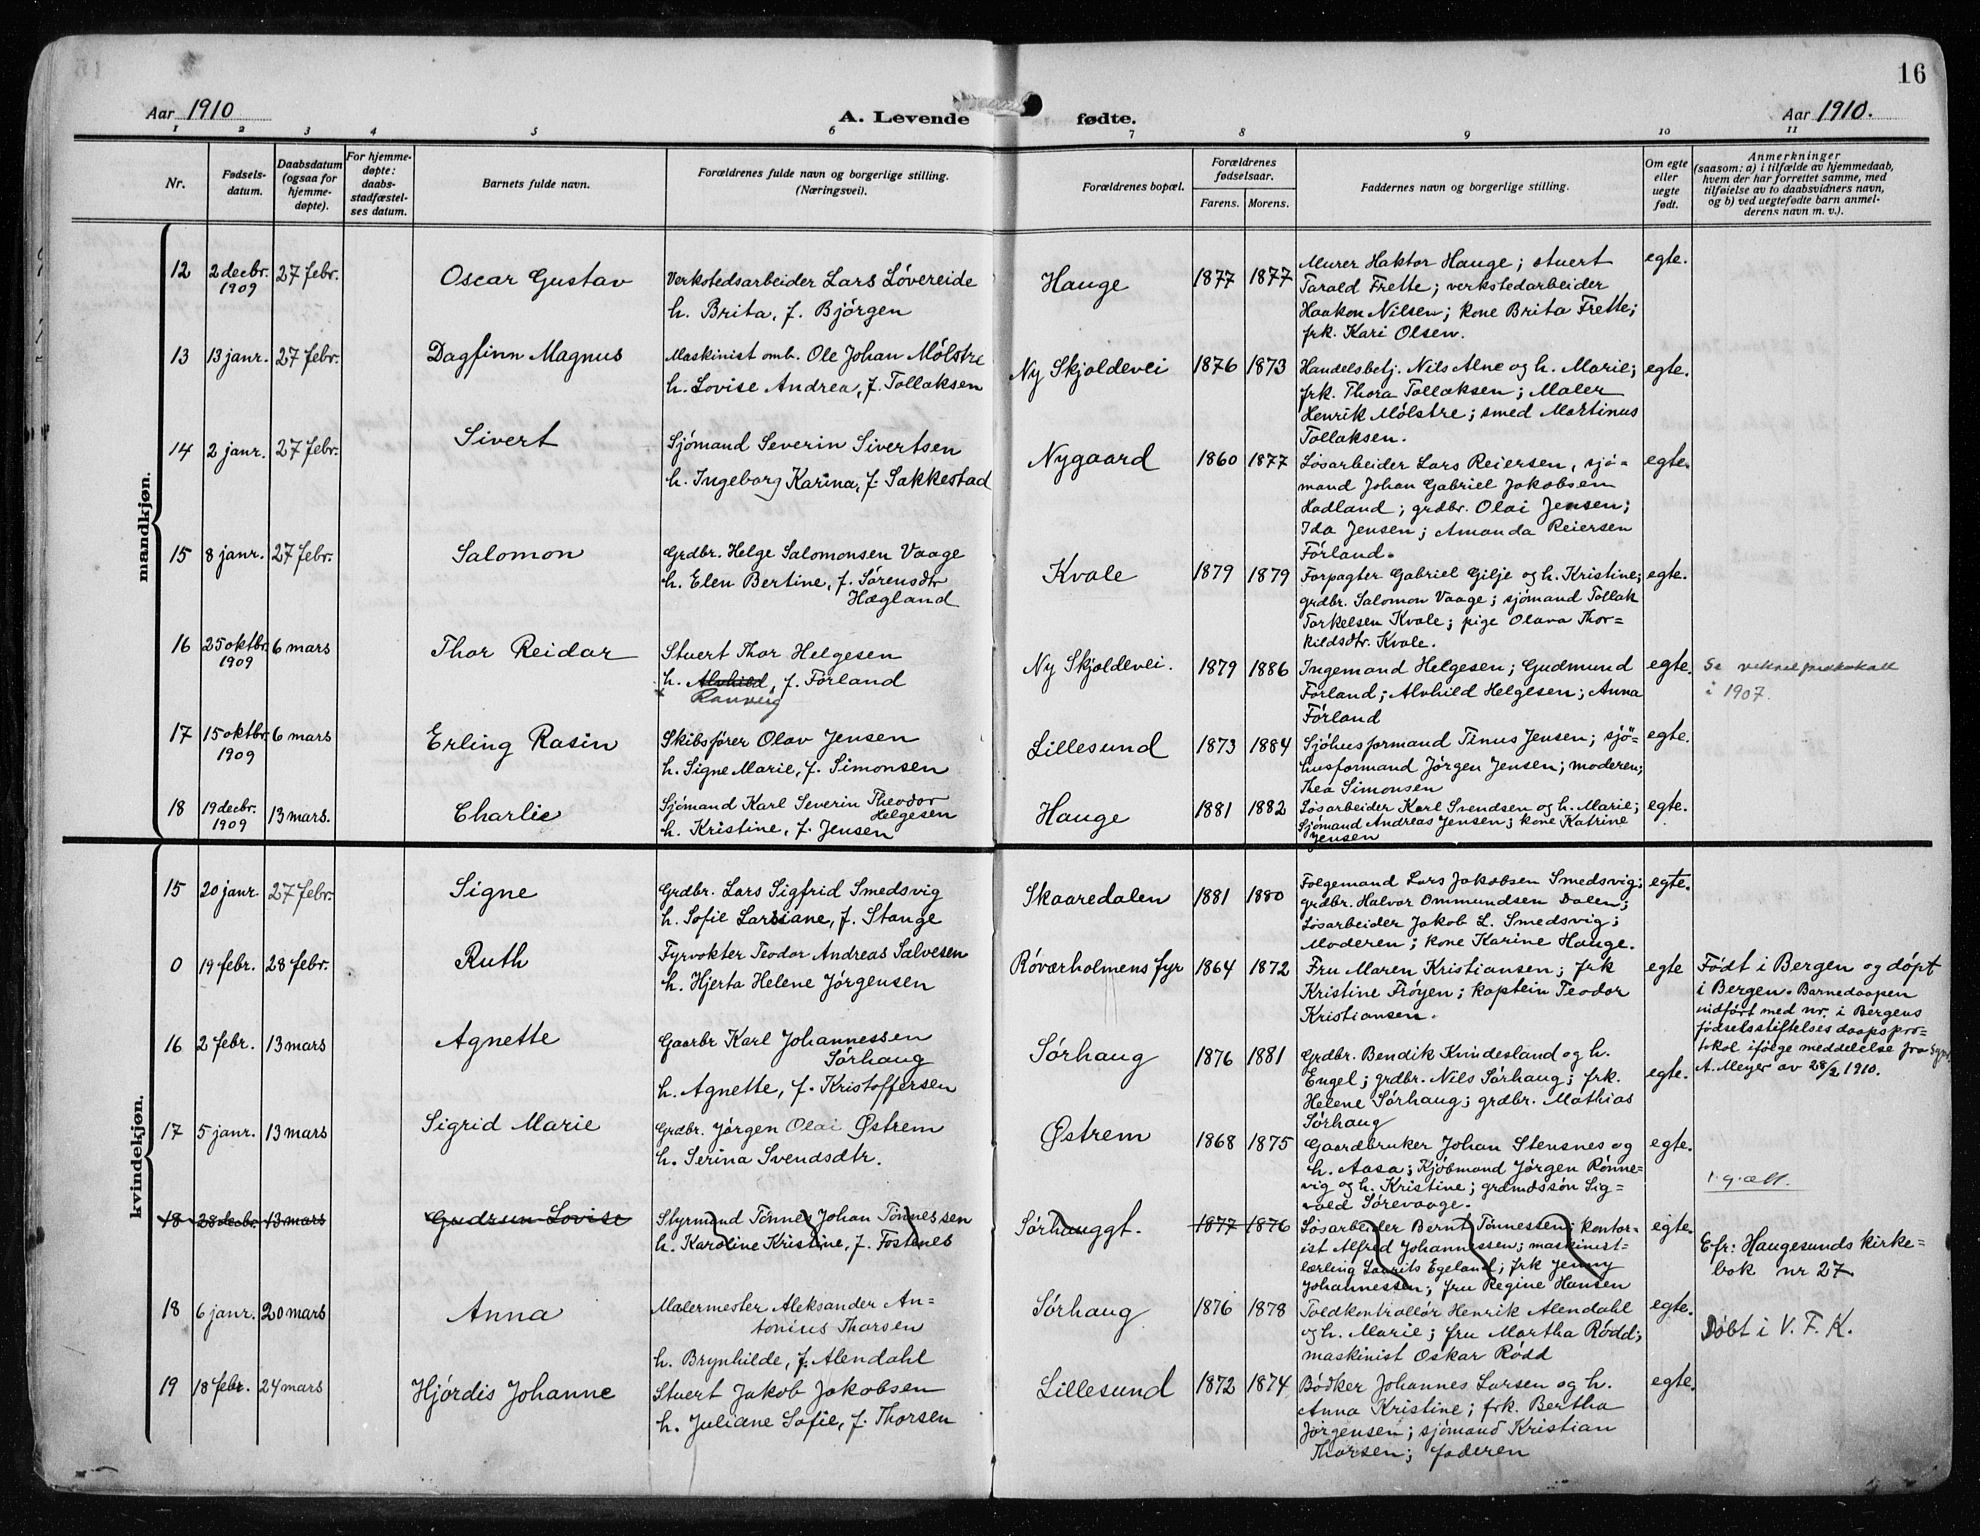 16
Aar 1910
A. Levende fødte.
Aar 1910.
1 2 3 4 5 6 7 8 9 10 11
Nr.
Fødsels-
datum.
Daabsdatum
(ogsaa for
hjemme-
døpte).
For hjemme-
døpte:
daabs-
stadfæstel-
ses datum.
Barnets fulde navn.
Forældrenes fulde navn og borgerlige stilling.
(Næringsvei).
Forældrenes bopæl.
Forældrenes
fødselsaar.
Farens. Morens.
Faddernes navn og borgerlige stilling.
Om egte
eller
uegte
født.
Anmerkninger
(saasom: a) i tilfælde av hjemmedaab,
hvem der har forrettet samme, med
tilføielse av to daabsvidners navn,
og b) ved uegtefødte barn anmel-
derens navn m. v.).
mandkjøn.
12 2 decbr. 1909 27 febr. Oscar Gustav
Verkstedsarbeider Lars Løvereide
h. Brita, f. Bjørgen
Hauge 1877 1877
Murer Haktor Hauge; stuert
Tarald Frette; verkstedarbeider
Haakon Nilsen; kone Brita Frette;
frk. Kari Olsen.
egte.
13 13 janr. 27 febr. Dagfinn Magnus
Maskinist omb. Ole Johan Mølstre
h. Lovise Andrea, f. Tollaksen
Ny Skjoldevei 1876 1873
Handelsbetj. Nils Alne og h. Marie;
frk. Thora Tollaksen; Maler
Henrik Mølstre; smed Martinus
Tollaksen.
egte.
14 2 janr. 27 febr. Sivert
Sjømand Severin Sivertsen
h. Ingeborg Karina, f. Sakkestad
Nygaard 1860 1877
Løsarbeider Lars Reiersen, sjø-
mand Johan Gabriel Jakobsen
Hadland; grdbr. Olai Jensen;
Ida Jensen; Amanda Reiersen
Førland.
egte.
15 8 janr. 27 febr. Salomon
Grdbr. Helge Salomonsen Vaage
h. Elen Bertine, f. Sørensdtr
Hægland
Kvale 1879 1879
Forpagter Gabriel Gilje og h. Kristine;
grdbr. Salomon Vaage; sjømand Tollak
Torkelsen Kvale; pige Olava Thor-
kildsdtr. Kvale.
egte.
16 25 oktbr. 1909 6 mars Thor Reidar
Stuert Thor Helgesen
h. Alvhild, f. Førland
Ranveig
Ny Skjoldevei. 1879 1886
Ingemand Helgesen; Gudmund
Førland; Alvhild Helgesen; Anna
Førland
egte.
Se vekselprotokoll
i 1907.
17 15 oktbr. 1909 6 mars Erling Rasin
Skibsfører Olav Jensen
h. Signe Marie, f. Simonsen
Lillesund 1873 1884
Sjøhusformand Tinus Jensen; sjø-
husformand Jørgen Jensen; moderen;
Thea Simonsen
egte.
18 19 decbr. 1909 13 mars. Charlie
Sjømand Karl Severin Theodor
Helgesen
h. Kristine, f. Jensen
Hauge 1881 1882
Løsarbeider Karl Svendsen og h. Marie;
Sjømand Andreas Jensen; kone Katrine
Jensen
egte.
kvindekjøn.
15 20 janr. 27 febr. Signe
Grdbr. Lars Sigfrid Smedsvig
h. Sofie Larsiane, f. Stange
Skaaredalen 1881 1880
Følgemand Lars Jakobsen Smedsvig;
grdbr. Halvor Ommundsen Dalen;
Løsarbeider Jakob L. Smedsvig;
Moderen; kone Karine Hauge.
egte.
0 19 febr. 28 febr. Ruth
Fyrvokter Teodor Andreas Salvesen
h. Hjerta Helene Jørgensen
Røværholmens fyr 1864 1872
Fru Maren Kristiansen; frk
Kristine Frøyen; kaptein Teodor
Kristiansen.
egte
Født i Bergen og døpt
i Bergen. Barnedaapen
indført med nr. i Bergens
fødselsstiftelses daapspro-
tokol ifølge meddelelse fra
A. Meyer av 28/2 1910.
16 2 febr. 13 mars Agnette
Gaarbr Karl Johannessen
Sørhaug
h. Agnette, f. Kristoffersen
Sørhaug 1876 1881
Grdbr. Bendik Kvindesland og h.
Engel; grdbr. Nils Sørhaug; frk.
Helene Sørhaug; grdbr. Mathias
Sørhaug
egte.
17 5 janr. 13 mars Sigrid Marie
Grdbr. Jørgen Olai Østrem
h. Serina Svendsdtr.
Østrem 1868 1875
Gaardbruker Johan Stensnes og
h. Aasa; Kjøbmand Jørgen Rønne-
vig og h. Kristine; grdmdssøn Sig-
vald Sørevaage.
egte.
18 28 decbr. 13 mars Gudrun Lovise
Styrmand Tønnes Johan Tønnessen
h. Karoline Kristine, f. Fostenes
Sørhauggt. 1877 1876
Løsarbeider Bernt Tønnessen; kontor-
ist Alfred Johannessen; maskinist-
lærling Laurits Egeland; frk Jenny
Johannessen; fru Regine Hansen
egte.
Efr: Haugesunds kirke-
bok nr 27
18 6 janr. 20 mars Anna
Malermester Aleksander An-
tonius Thorsen
h. Brynhilde, f. Alendahl
Sørhaug 1876 1878
Toldkontrollør Henrik Alendahl
og h. Marie; fru Martha Rødd;
maskinist Oskar Rødd
egte.
Døbt i V. F. K.
19 18 febr. 24 mars Hjørdis Johanne
Stuert Jakob Jakobsen
h. Juliane Sofie, f. Thorsen
Lillesund 1872 1874
Bødker Johannes Larsen og h.
Anna Kristine; frk. Bertha
Jørgensen; sjømand Kristian
Thorsen; faderen
egte.